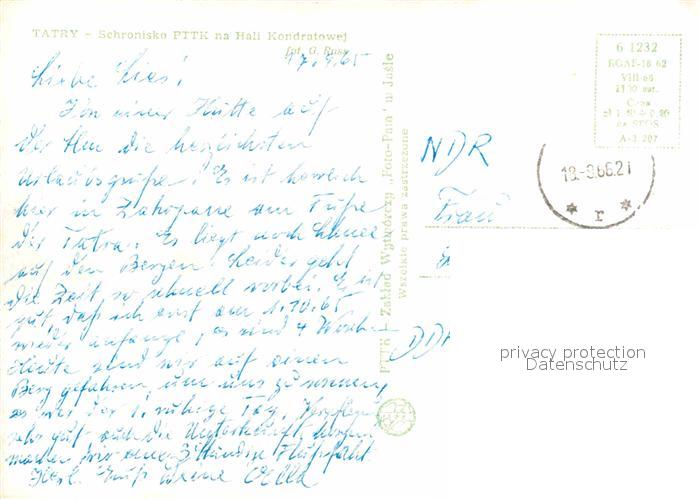 TATRY – Schronisko PTTK na Hali Kondratowej
fot. G. Russ
17.9.65
Liebe Lies!
Von einer Hütte auf
der Alm die herzlichsten
Urlaubsgrüße! Es ist herrlich
hier in Zakopane am Fuße
der Tatra. Es liegt noch Schnee
auf den Bergen. Leider geht
die Zeit so schnell vorbei. Es ist
gut, daß ich erst am 1.10.65
wieder anfange, es sind 4 Wochen
Heute sind wir auf einen
Berg gefahren, um uns zu sonnen,
es war der 1. ruhige Tag. Verpflegung
sehr gut – auch die Unterkunft, morgen
machen wir eine 3 stündige Flußfahrt
Herzl. Gruß deine
PTTK – Zakład Wytwórczy „Foto-Pam” w Jaśle
Wszelkie prawa zastrzeżone
6 1232
RGAF-18 62
VIII-64
Cena
A-3 207
18.-9.65.21
r
NDR
Frau
DDR
privacy protection
Datenschutz